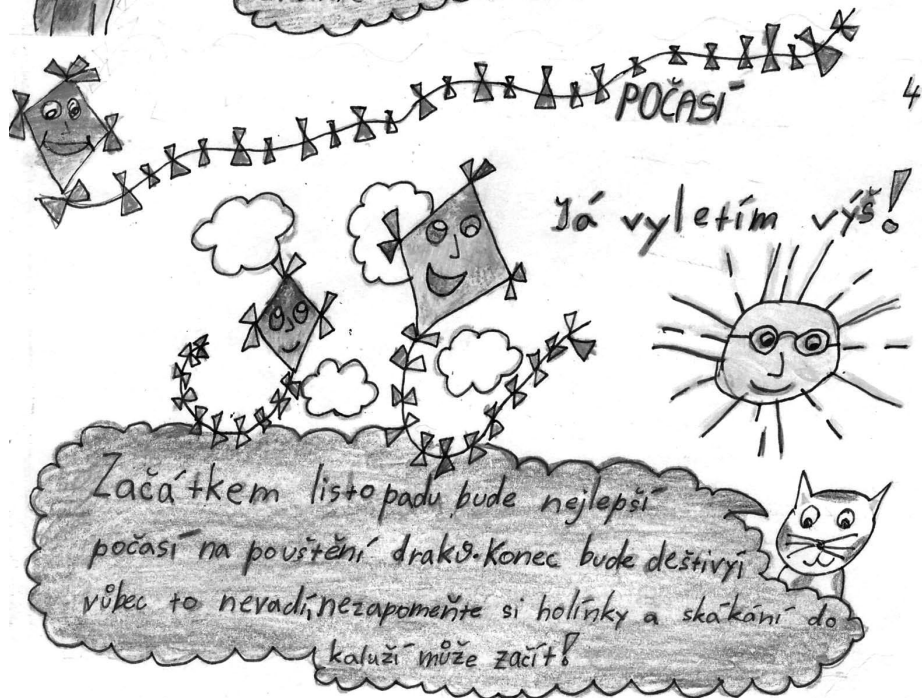 POČASÍ
4
Já vyletím výš!
Začátkem listopadu bude nejlepší
počasí na pouštění draků. Konec bude deštivý,
vůbec to nevadí, nezapomeňte si holínky a skákání do
kaluží může začít!